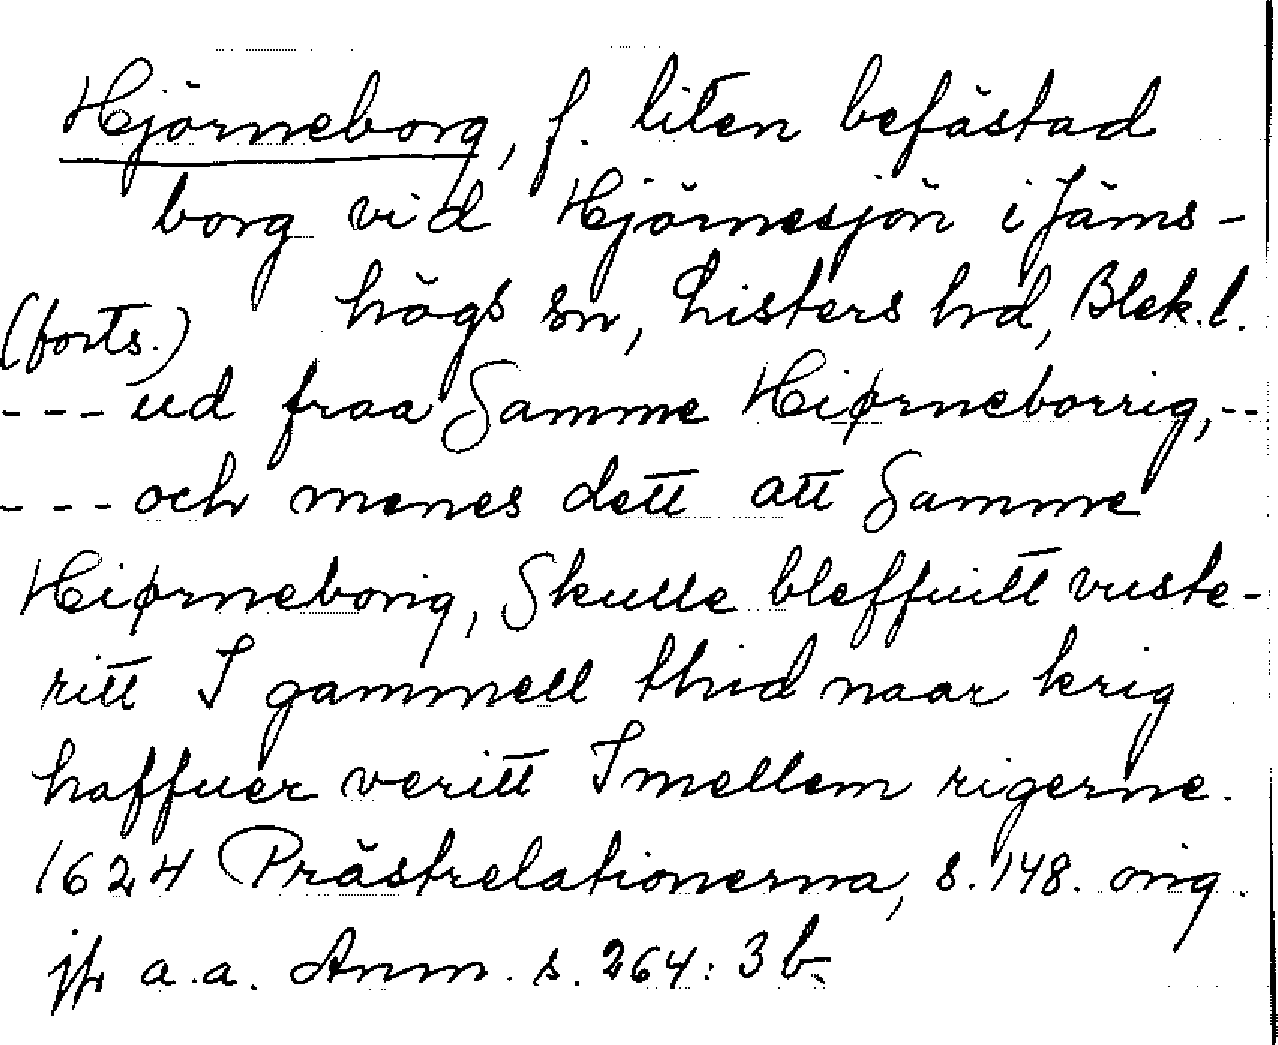 Hjörneborg, f. liten befästad
borg vid Hjörnesjön i Jäms-
högs sn, Listers hd, Blek. l.
(forts.)
--- ud fraa Samme Hiørneborrig, --
--- och menes dett att Samme
Hiørneborig, Skulle bleffuitt vuste-
ritt I gammell thid naar krig
haffuer veritt Imellem rigerne.
1624 Prästrelationerna, s. 148. orig.
jfr a.a. Anm. s. 264: 3 b.